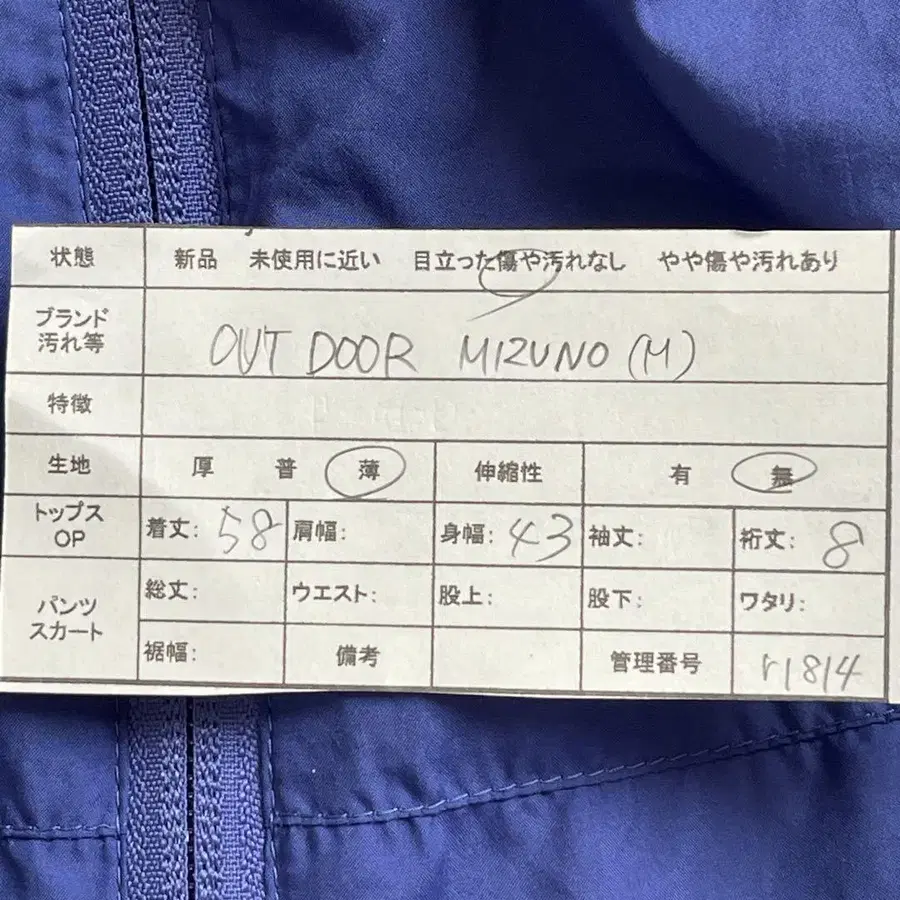 状態 新品 未使用に近い 目立った傷や汚れなし やや傷や汚れあり
ブランド
汚れ等
OUT DOOR MIZUNO (M)
特徴
生地 厚 普 薄 伸縮性 有 無
トップス
OP
着丈: 58 肩幅: 身幅: 43 袖丈: 裄丈: 8
パンツ
スカート
総丈: ウエスト: 股上: 股下: ワタリ:
裾幅: 備考 管理番号 r1814